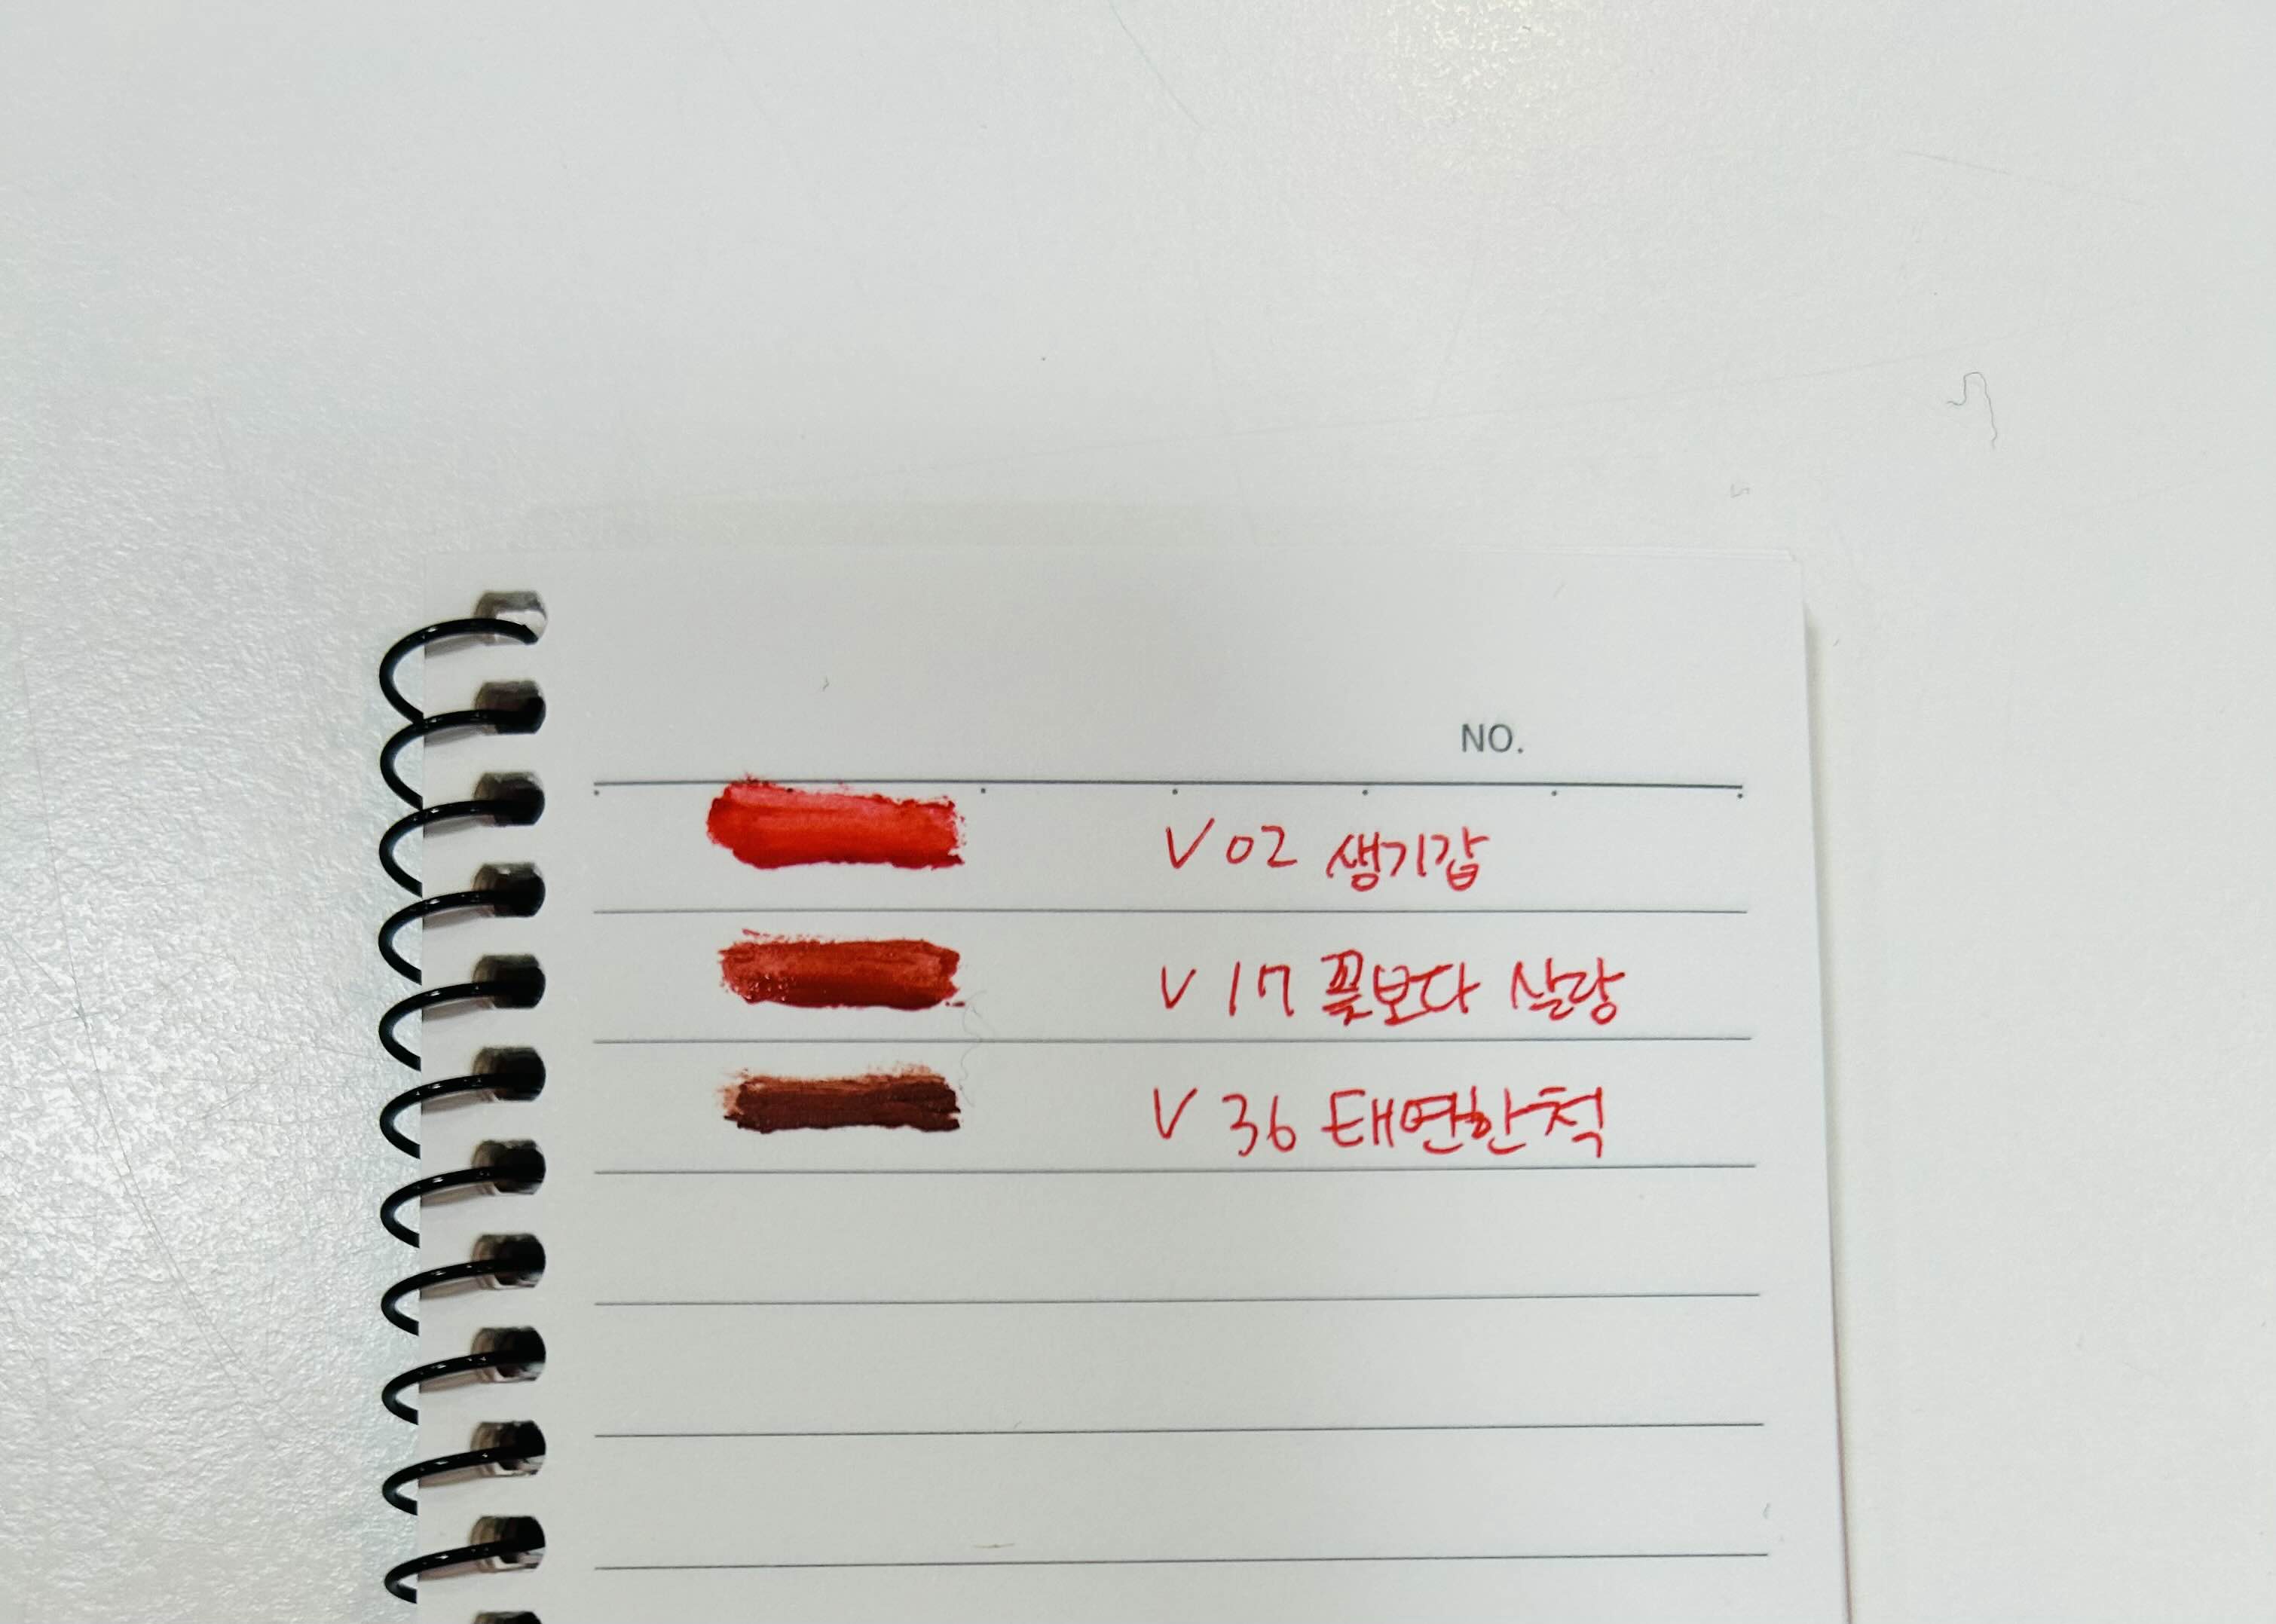 NO.
V 02 생기갑
V 17 꽃보다 살랑
V 36 태연한척